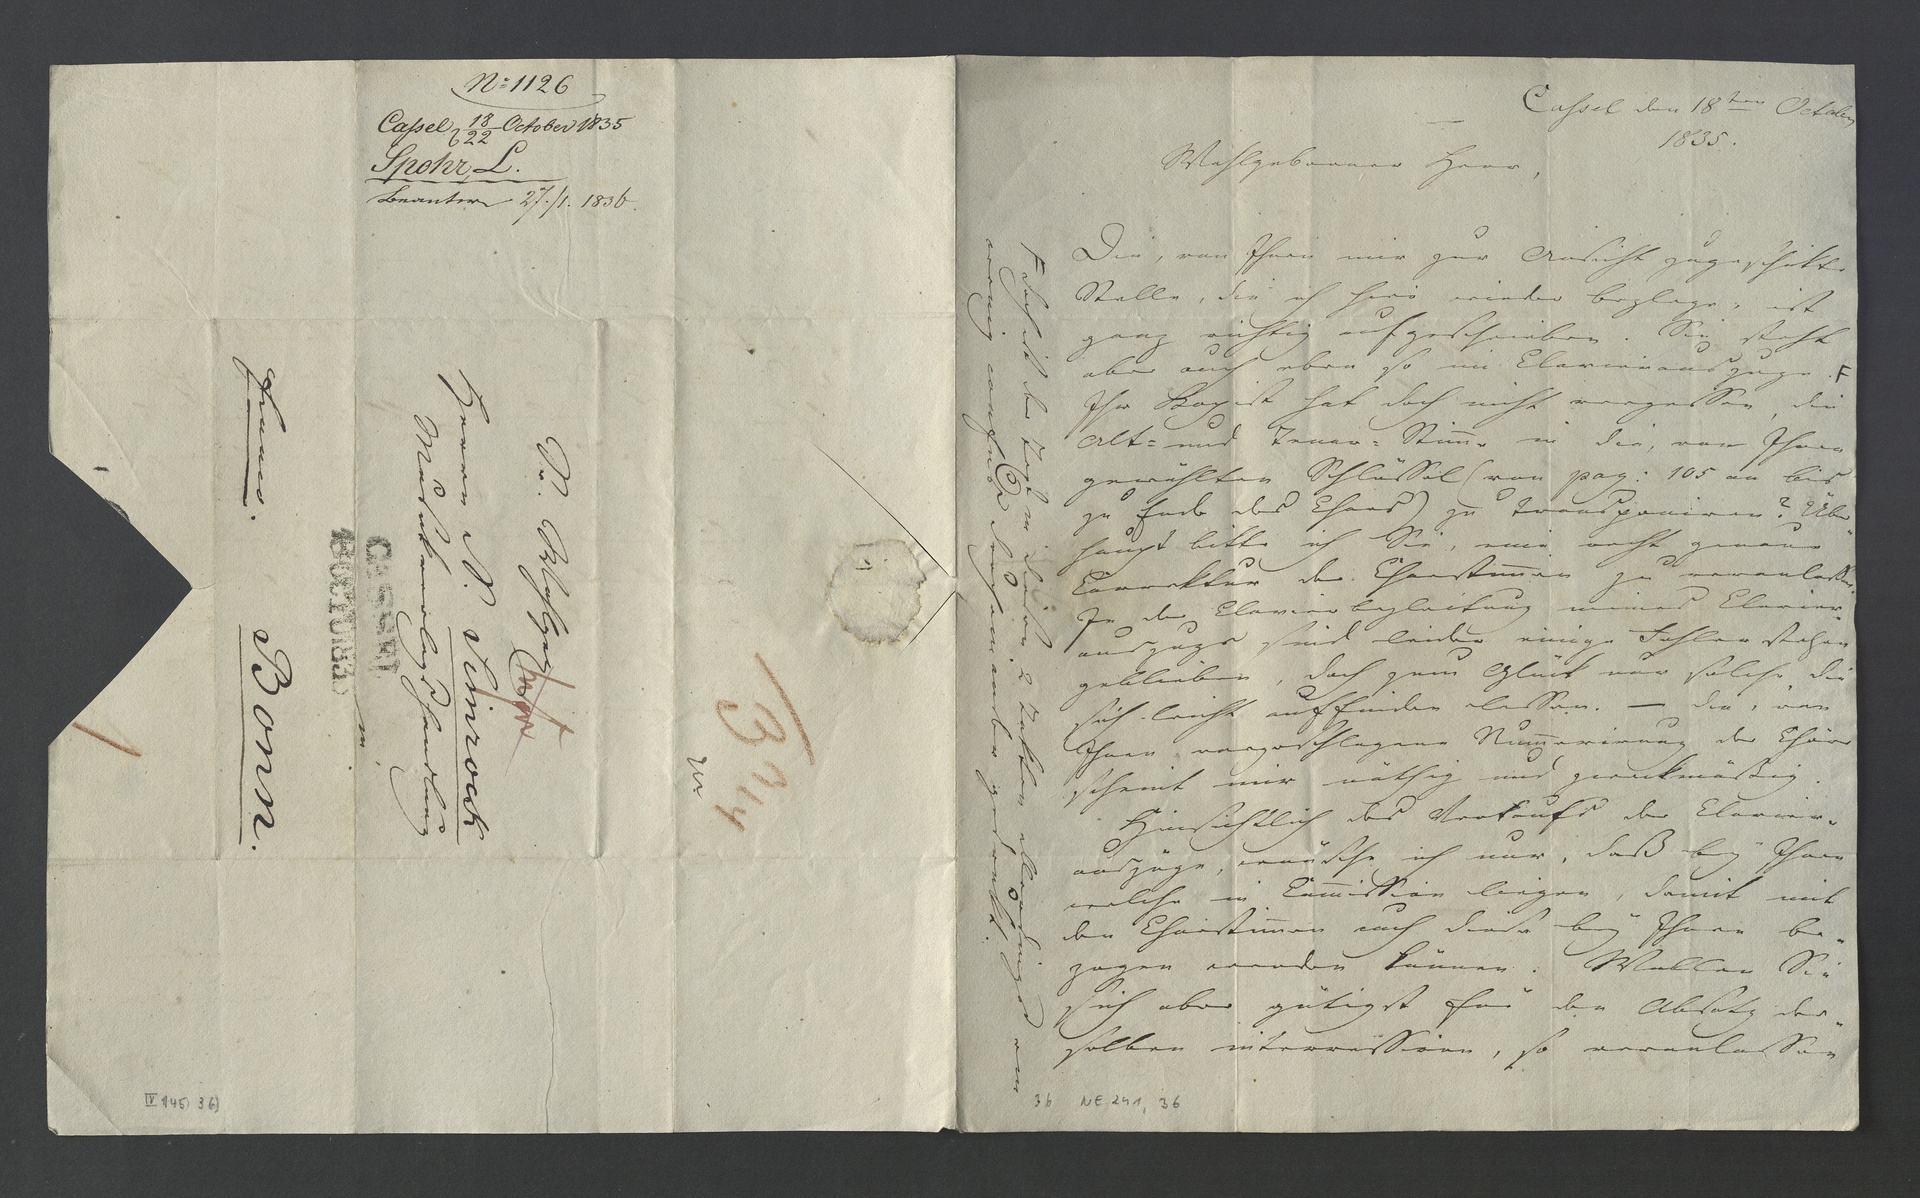 No 1126
Cassel, 18/22 October 1835
Spohr, L.
beantw 27./1. 1836.
Sr. Wohlgeb
Herrn N. Simrock
Musikverlagshandlung
in
Bonn.
franco.
CASSEL
3 3/4
IV 145) 36)
Cassel den 18ten October
1835.
Wohlgeborner Herr,
Die, von Ihnen mir zur Ansicht zugeschickte
Stelle, die ich hier wieder beylege, ist
ganz richtig aufgeschrieben. Sie steht
aber auch eben so im Clavierauszuge. F
Ihr Kopist hat doch nicht vergessen, die
Alt- und Tenor-Stimme in die, von Ihnen
gewählten Schlüssel (von pag: 105 an bis
zu Ende des Chors) zu transponiren? Über-
haupt bitte ich Sie, eine recht genaue
Correktur der Chorstimmen zu veranlassen.
In der Clavierbegleitung meines Clavier-
auszugs sind leider einige Fehler stehen
geblieben, doch zum Glück nur solche die
sich leicht auffinden lassen. — Die, von
Ihnen vorgeschlagene Nummerirung der Chöre
scheint mir nöthig und zweckmäßig.
Hinsichtlich des Verkaufs der Clavier-
auszüge, wünsche ich nur, daß bey Ihnen
welche in Commission liegen, damit mit
den Chorstimmen auch diese bey Ihnen be-
zogen werden können. Wollen Sie
sich aber gütigst für den Absatz der-
selben interressiren, so veranlassen
F doch ist der Text in diesen 2 Takten allerdings ein
wenig confus durcheinander gedruckt.
36 NE 241, 36